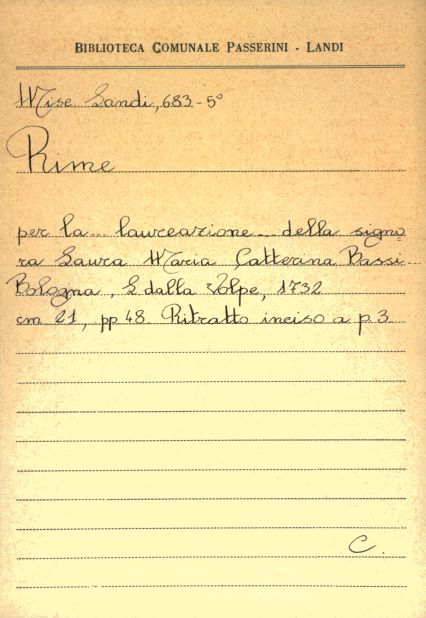 BIBLIOTECA COMUNALE PASSERINI - LANDI
Misc Landi, 683-5°
Rime
per la... laureazione... della signo=
ra Laura Maria Catterina Bassi...
Bologna, L dalla Volpe, 1732
cm 21, pp 48 Ritratto inciso a p. 3
C.